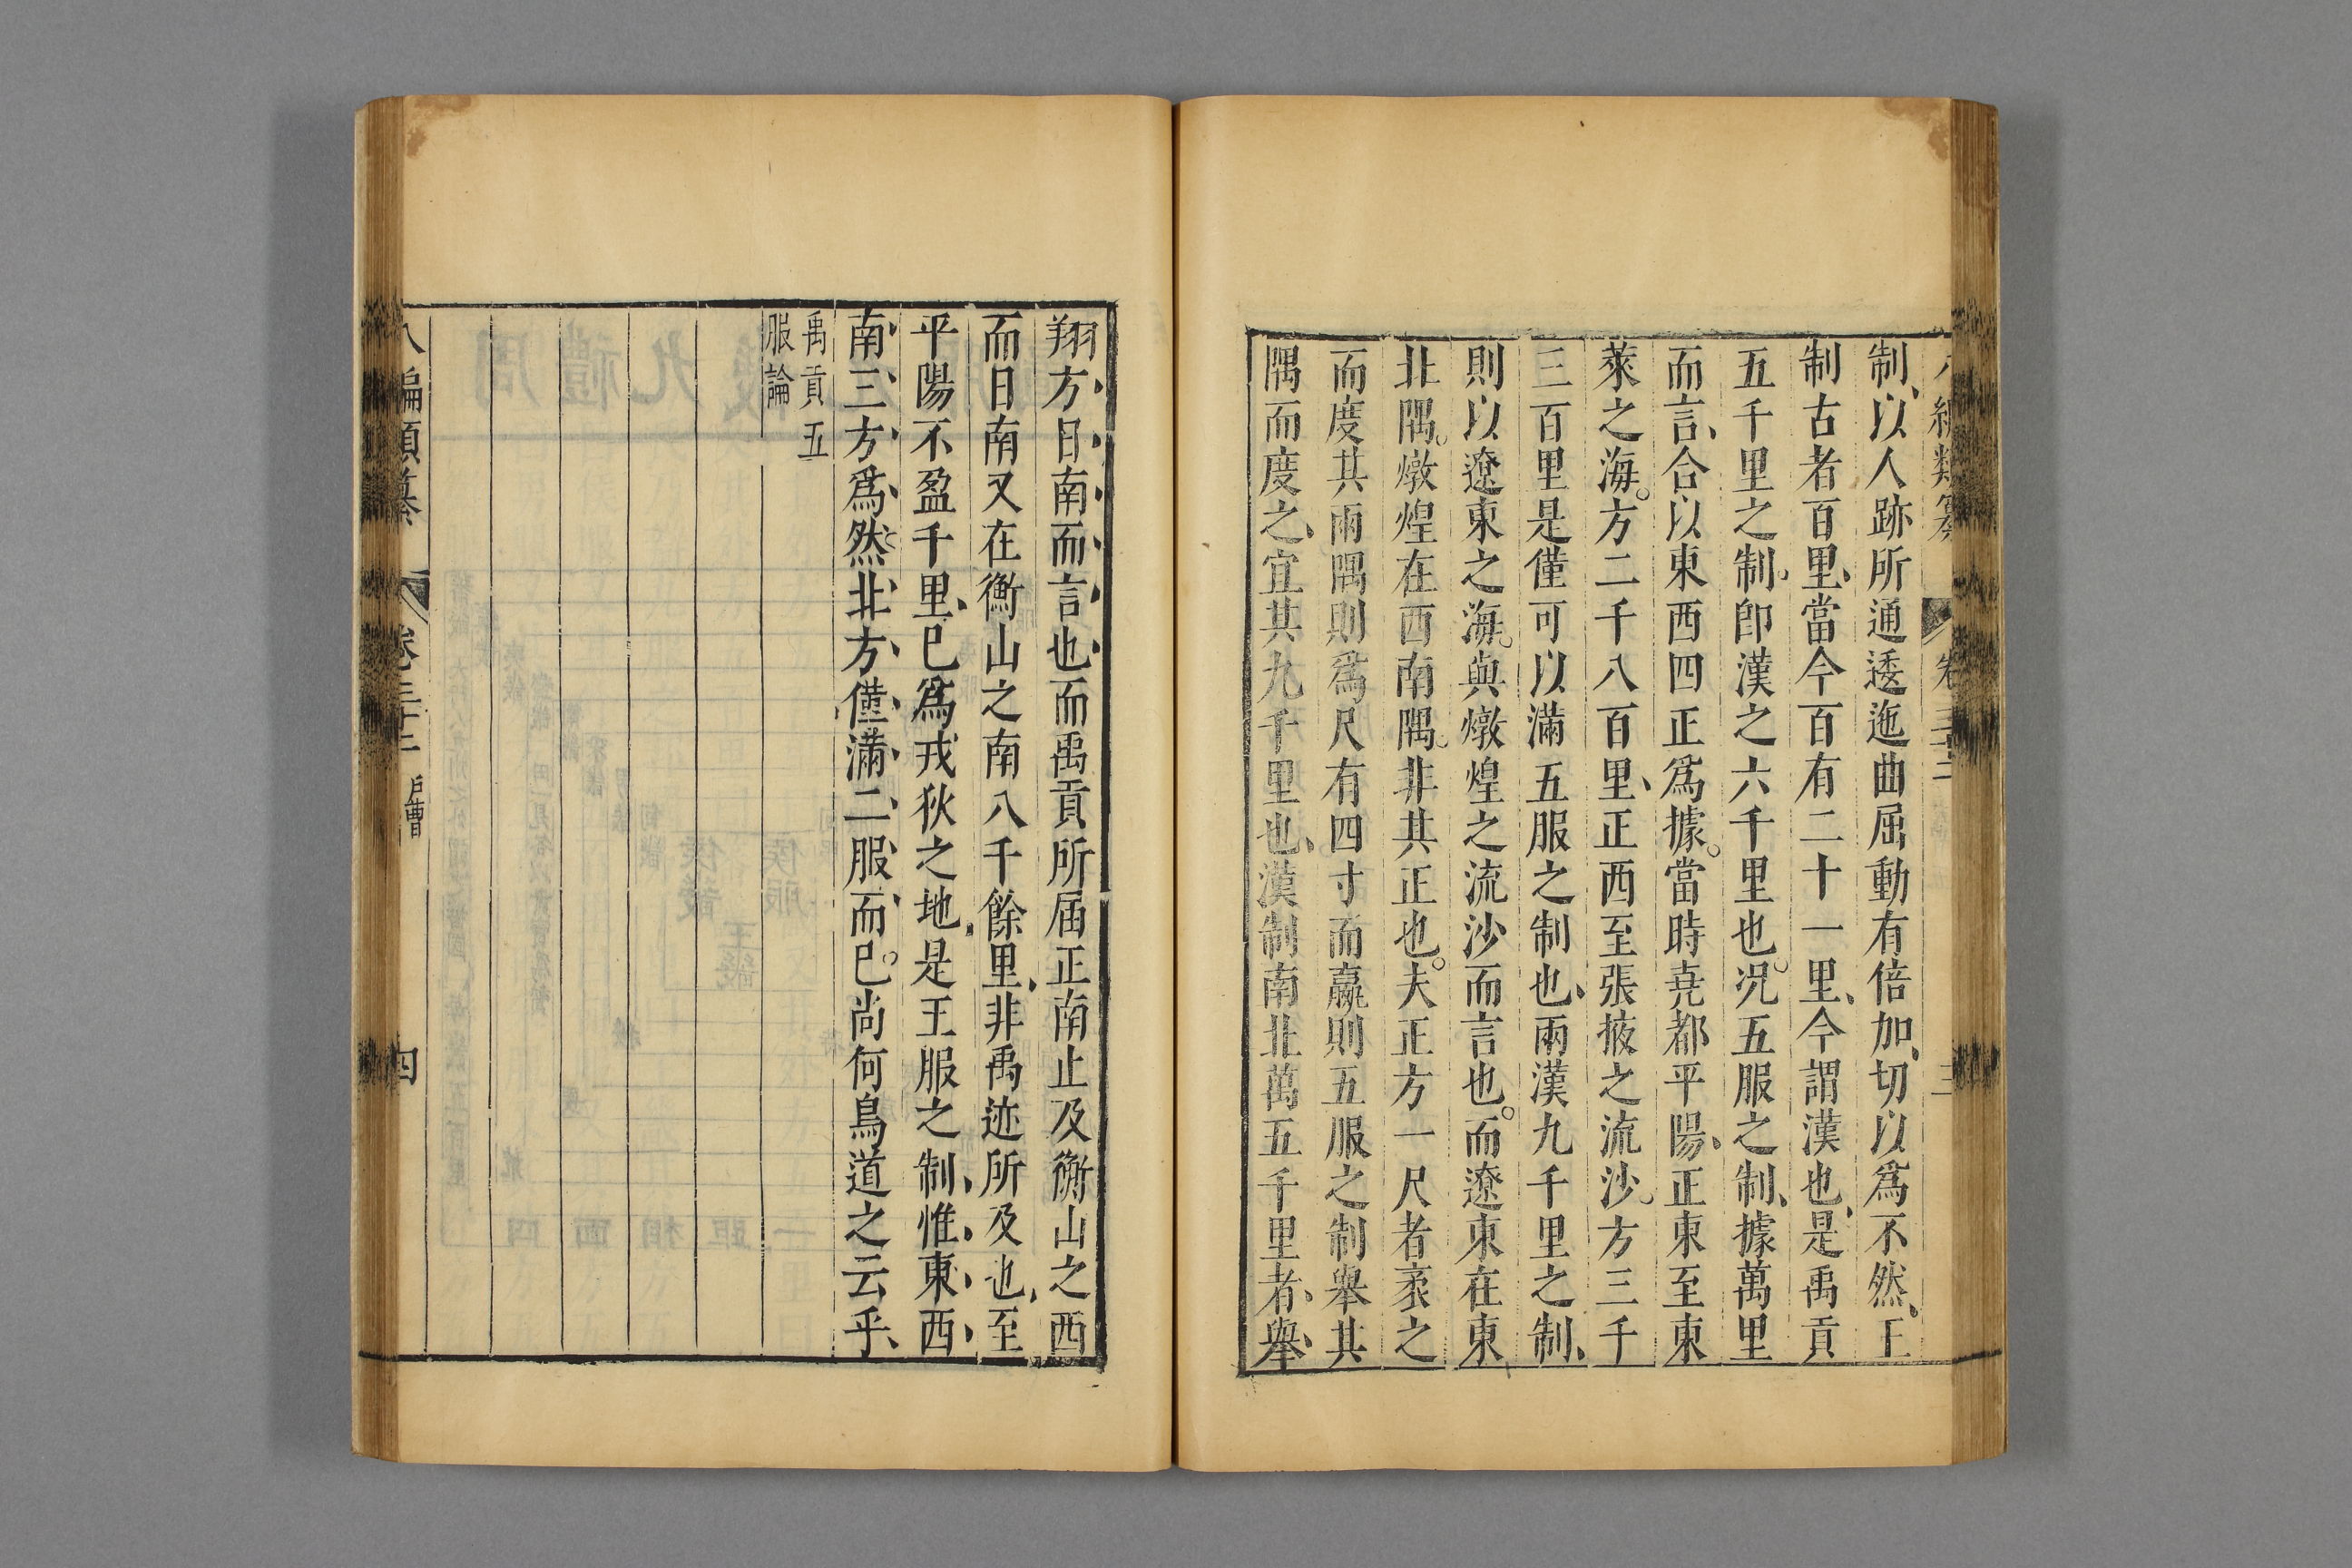 八編類纂 卷三十二 三
制、以人跡所通逶迤曲屈動有倍加、切以爲不然。王
制古者百里、當今百有二十一里、今謂漢也、是禹貢
五千里之制。卽漢之六千里也。况五服之制、據萬里
而言、合以東西四正爲據。當時堯都平陽、正東至東
萊之海。方二千八百里、正西至張掖之流沙。方三千
三百里是僅可以滿五服之制也、兩漢九千里之制、
則以遼東之海。與燉煌之流沙而言也。而遼東在東
北隅。燉煌在西南隅。非其正也。夫正方一尺者袤之
而度其兩隅則爲尺有四寸而贏則五服之制舉其
隅而度之、宜其九千里也、漢制南北萬五千里者、舉
翔方、日南而言也而禹貢所届正南止及衡山之西
而日南又在衡山之南八千餘里、非禹迹所及也、至
平陽不盈千里、巳爲戎狄之地、是王服之制、惟東、西、
南、三方爲然、北方僅滿二服而巳。尚何鳥道之云乎、
禹貢五
服論
八編類纂 卷三十二 戶曹 四